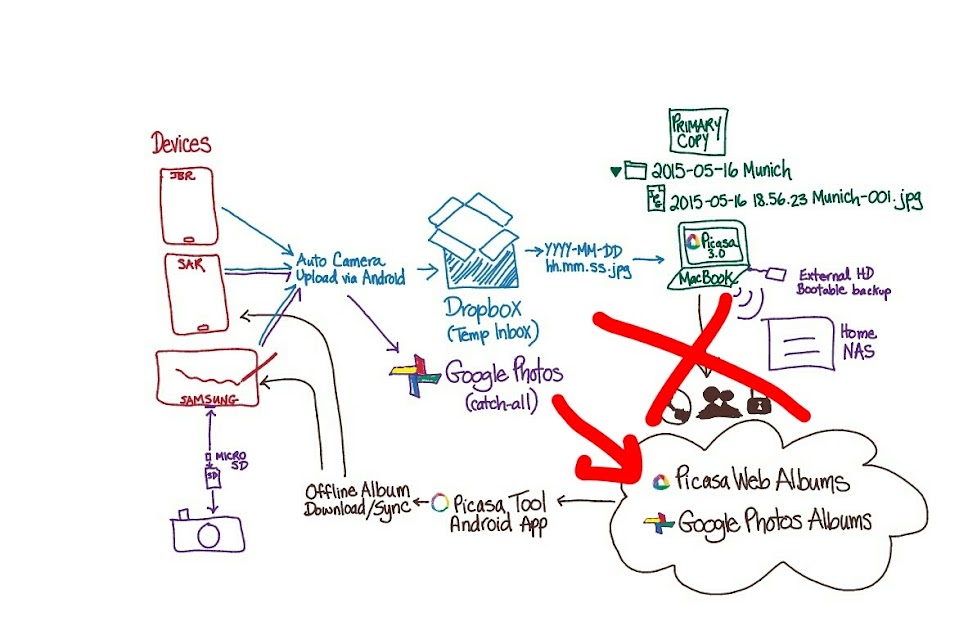 PRIMARY
COPY
Devices
JBR
2015-05-16 Munich
2015-05-16 18.56.23 Munich-001.jpg
SAR
Auto Camera
Upload via Android
YYYY-MM-DD
hh.mm.ss.jpg
Picasa
3.0
MacBook
External HD
Bootable backup
Dropbox
(Temp Inbox)
Home
NAS
Google Photos
(catch-all)
SAMSUNG
MICRO
SD
SD
Offline Album
Download/Sync
Picasa Tool
Android App
Picasa Web Albums
Google Photos Albums